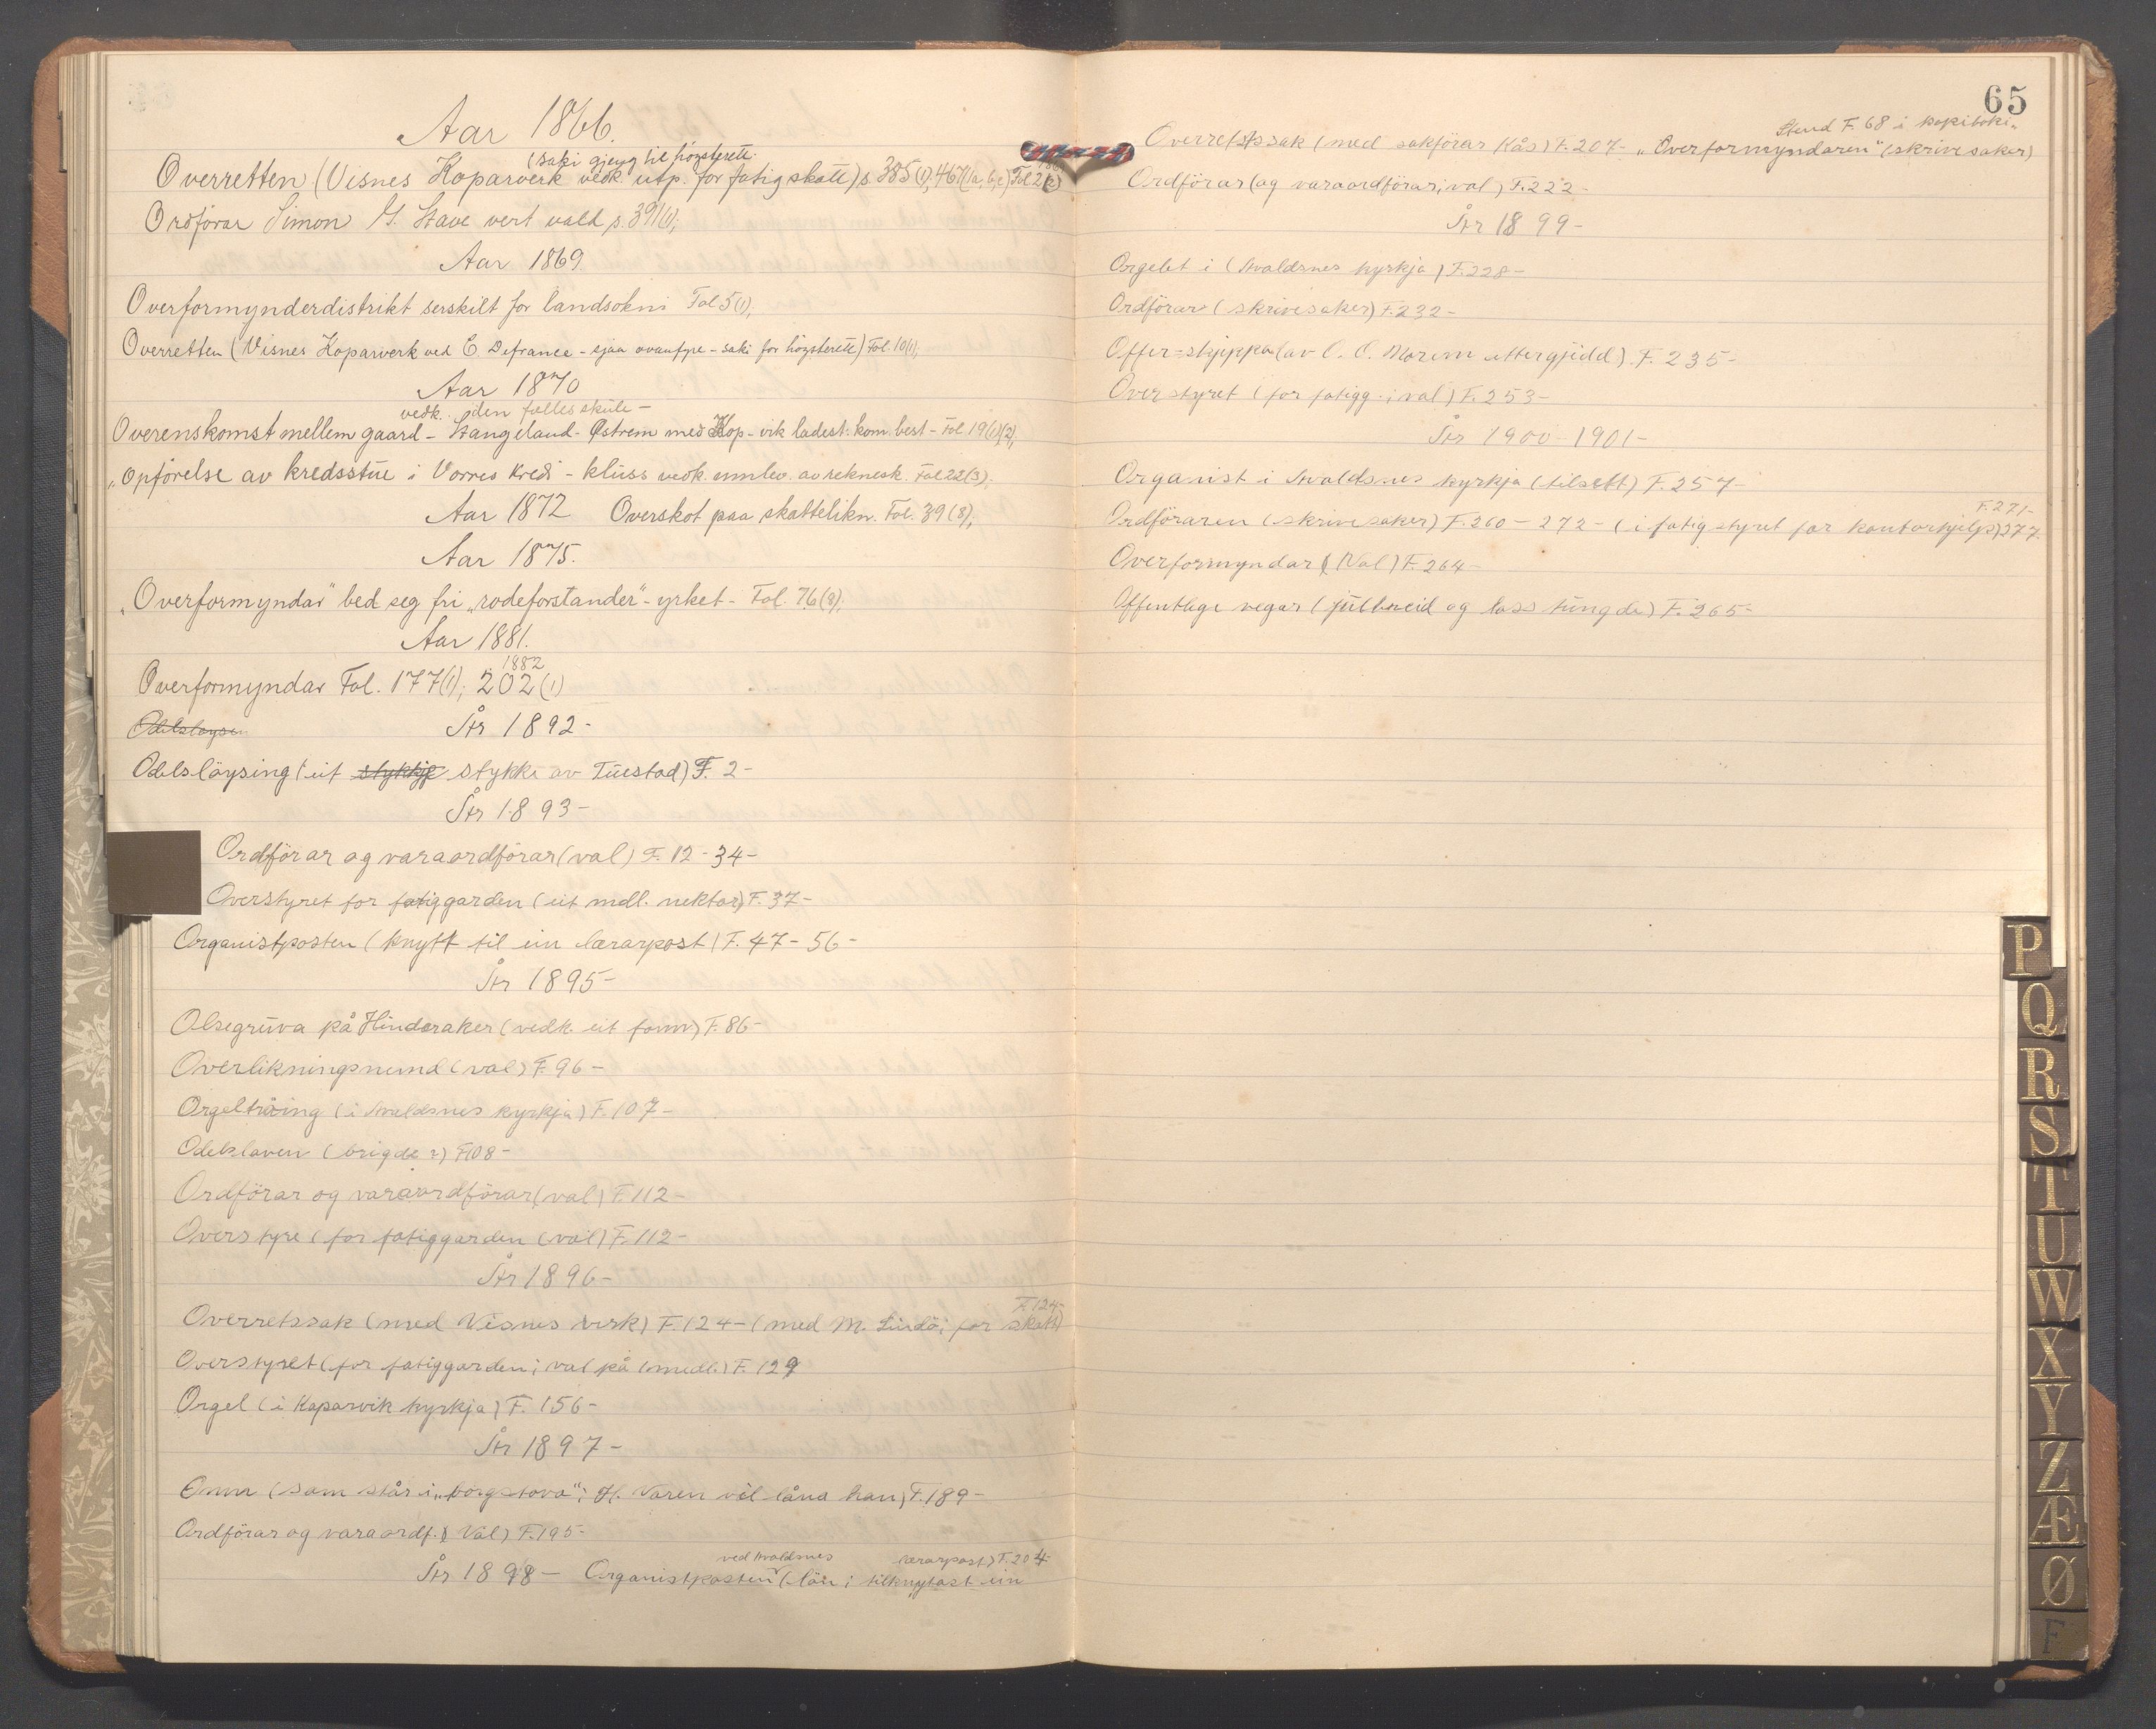 Aar 1866.
(saki gjeng til högsterett.
Overretten (Visnes Koparverk vedk. utp. for fatigskatt) s. 385(1), 467(1a, b, c) Fol 2(2)
Ordförar Simon G. Stave vert vald s. 391(1);
Aar 1869
Overformynderdistrikt serskilt for landsokni Fol 5(1);
Overretten (Visnes Koparverk ved C. Defrance - sjaa ovanfyre - saki for högsterett) Fol. 10(1);
Aar 1870
vedk. den fælles skule -
Overenskomst mellem gaard - Stangeland - Østrem med Kop-vik ladest. kom. best - Fol 19(1)(2);
„Opförelse av kredsstue i Vorres Kreds - kluss vedk. innlev. av reknesk. Fol 22(3);
Aar 1872 Overskot paa skattelikn. Fol. 39(8);
Aar 1875.
„Overformyndar" bed seg fri „rodeforstander"-yrket - Fol. 76(8);
Aar 1881.
1882
Overformyndar Fol. 177(1); 202(1)
Odelsloysen År 1892-
Odelslöysing (eit stykkje stykke av Tuestad) F. 2-
År 1893-
Ordförar og varaordförar (val) F. 12-34-
Overstyret for fatiggarden (eit mdl. nektar) F. 37-
Organistposten (knytt til ein lærarpost) F. 47-56-
År 1895-
Olsegruva på Hinderaker (vedk. eit fonn) F. 86-
Overlikningsnemnd (val) F. 96-
Orgeltröing (i Avaldsnes kyrkja) F. 107-
Odelslaven (brigde?) F108-
Ordförar og varaordförar (val) F. 112-
Overstyre (for fatiggarden (val) F. 112-
År 1896-
F. 124-
Overretssak (med Visnes verk) F. 124- (med M. Lindö; for skatt)
Overstyret (for fatiggarden; val på 1 medl.) F. 129
Orgel (i Koparvik kyrkja) F. 156-
År 1897-
Omn (som står i „borgstova"; H. Varen vil låna han) F. 189-
Ordförar og varaordf. (Val) F. 195-
ved Avaldsnes lærarpost) F. 204-
År 1898- Organistposten (lön; tilknytast ein
65
Stend F. 68 i kopiboki-
Overrettssak (med sakförar Kås) F. 207- „Overformyndaren" (skrivesaker)
Ordförar (og varaordförar; val) F. 222-
År 1899-
Orgelet i (Avaldsnes kyrkja) F. 228-
Ordförar (skrivesaker) F. 232-
Offer-skjeppa (av O. O. Morem ettergjidd) F. 235-
Overstyret (for fatigg.; val) F. 253-
År 1900-1901-
Organist i Avaldsnes kyrkja (tilsett) F. 257-
F. 271-
Ordföraren (skrivesaker) F. 260-272- (i fatigstyret for kontorhjelp) 277.
Overformyndar (Val) F. 264-
Offentlege vegar (julbreid og lass tungde) F. 265-
P
Q
R
S
T
U
W
X
Y
Z
Æ
Ø
F